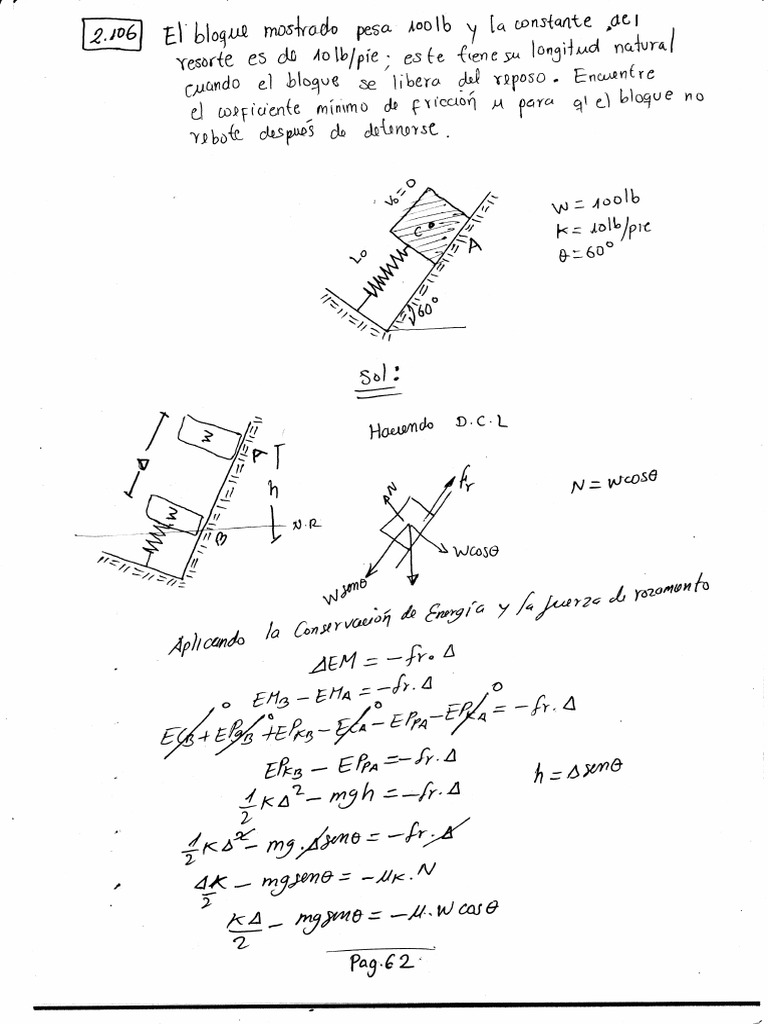 2.106 El bloque mostrado pesa 100lb y la constante del
resorte es de 10lb/pie; este tiene su longitud natural
cuando el bloque se libera del reposo. Encuentre
el coeficiente mínimo de fricción μ para q' el bloque no
rebote después de detenerse.
V₀=0
C
A
L₀
60°
W=100lb
K=10lb/pie
θ=60°
Sol:
Haciendo D.C.L
W
A
Δ
h
W
B
N.R
N
fr
Wcosθ
Wsenθ
N=Wcosθ
Aplicando la Conservación de Energía y la fuerza de rozamiento
ΔEM=-fr.Δ
EM_B-EM_A=-fr.Δ
EC_B+EPg_B+EP_KB-EC_A-EP_PA-EP_KA=-fr.Δ
0 0 0 0
EP_KB-EP_PA=-fr.Δ
h=Δsenθ
1/2 KΔ²-mgh=-fr.Δ
1/2 KΔ²-mg.Δsenθ=-fr.Δ
ΔK/2-mgsenθ=-μ_K.N
KΔ/2-mgsenθ=-μ.Wcosθ
Pag.62